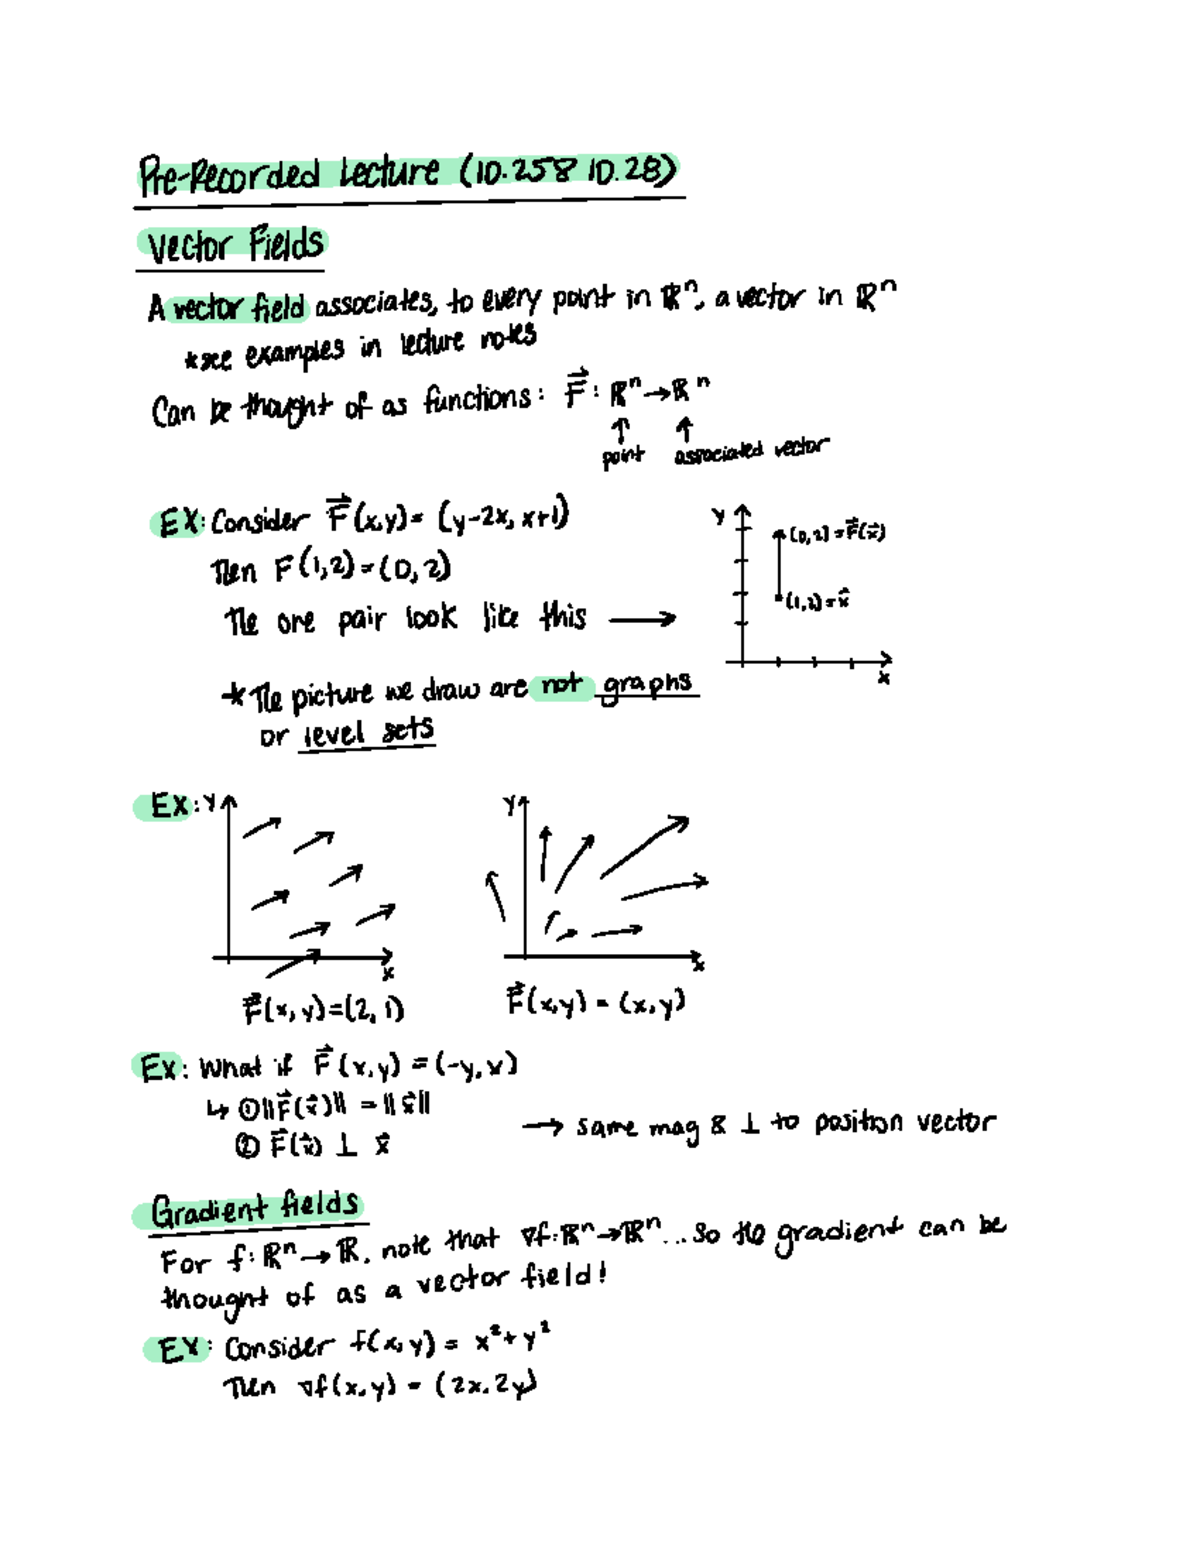 Pre-Recorded Lecture (10.25 & 10.28)
Vector Fields
A vector field associates, to every point in ℝⁿ, a vector in ℝⁿ
*see examples in lecture notes
Can be thought of as functions: F⃗: ℝⁿ→ℝⁿ
↑ ↑
point associated vector
EX: Consider F⃗(x,y)= (y-2x, x+1)
Then F(1,2)=(0,2)
The one pair look like this →
y
(0,2)=F⃗(x⃗)
(1,2)=x⃗
x
*The picture we draw are not graphs
or level sets
EX: y
x
F⃗(x,y)=(2,1)
y
x
F⃗(x,y) = (x,y)
Ex: What if F⃗(x,y) = (-y,x)
↳ ① ||F⃗(x⃗)|| = ||x⃗||
② F⃗(x⃗) ⊥ x⃗
→ same mag & ⊥ to position vector
Gradient fields
For f: ℝⁿ→ℝ, note that ∇f:ℝⁿ→ℝⁿ...so the gradient can be
thought of as a vector field!
EX: Consider f(x,y) = x²+y²
Then ∇f(x,y) = (2x,2y)